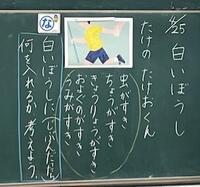 4/25 白いぼうし
たけの たけおくん
虫がすき
ちょうがすき
きょうりゅうがすき
およぐのがすき
うみがすき
な
白いぼうしに、じぶんだったら
何を入れるか考えよう。